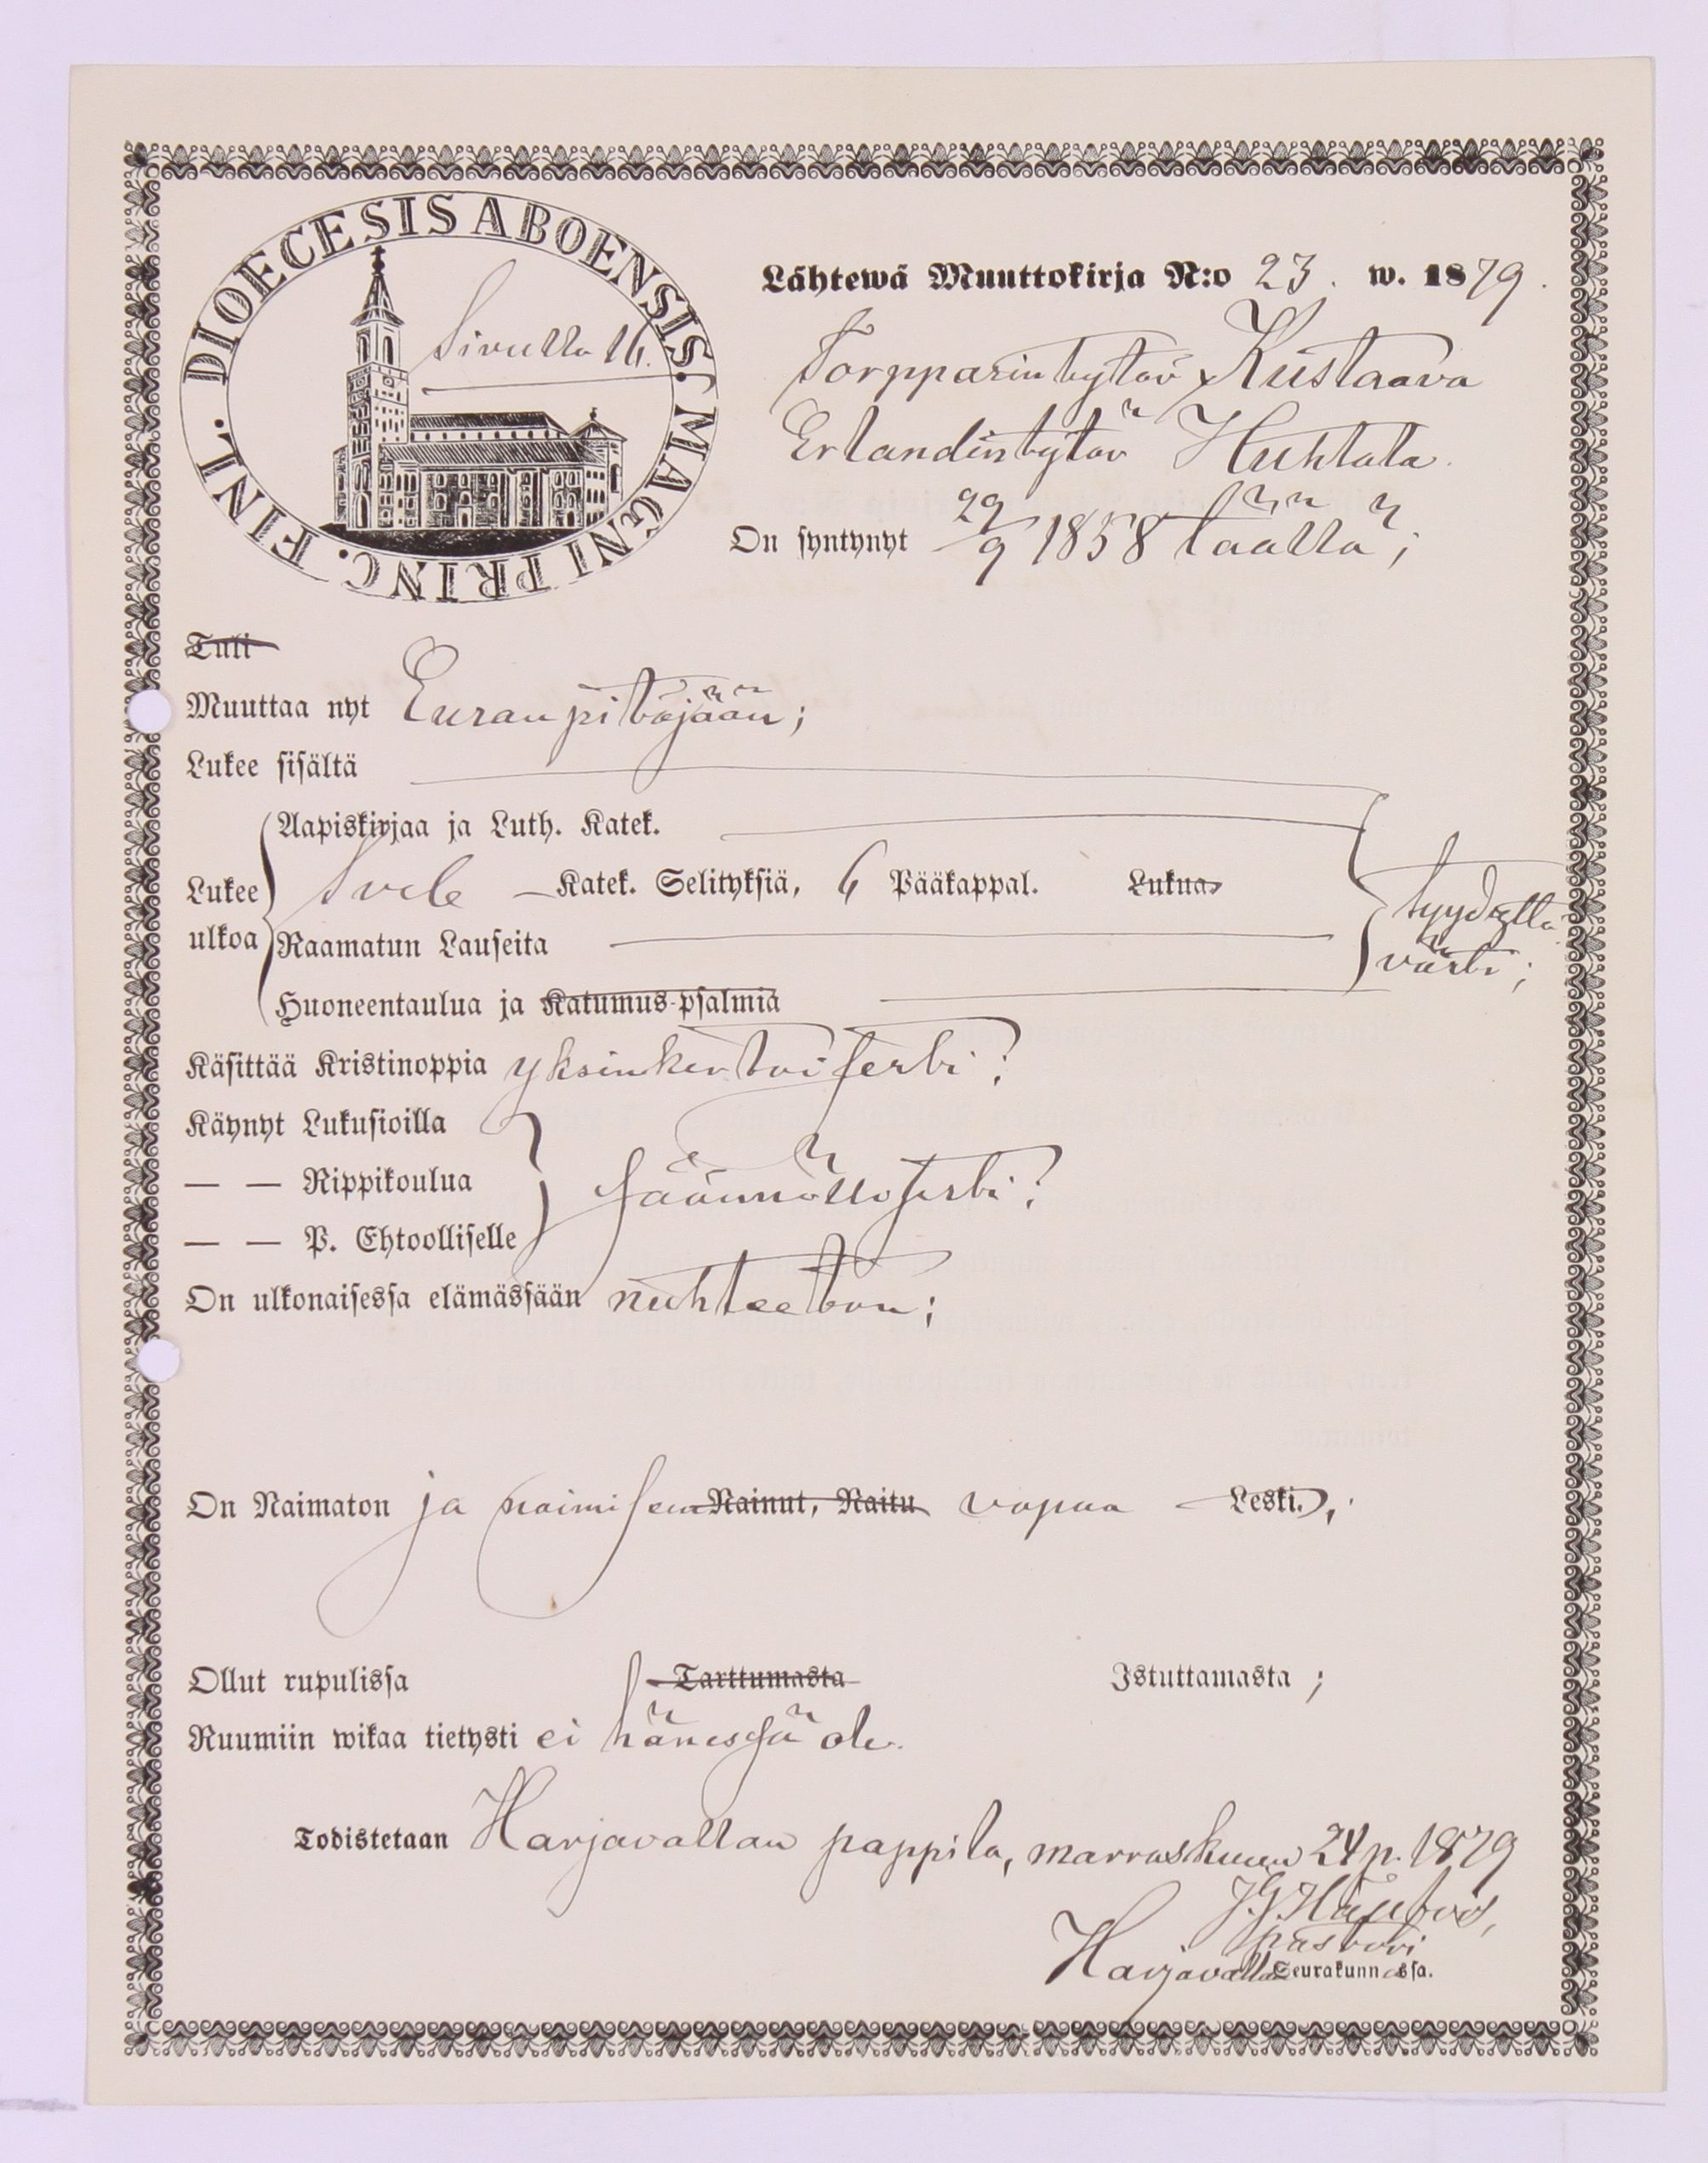 DIOECESIS ABOENSIS. MAGNI PRINC. FINL.
Sivulla 16.
Lähtewä Muuttokirja N:o 23. w. 1879.
Torpparin tytär Kustaava
Erlandintytär Huhtala.
On syntynyt 29/9 1858 täällä;
Tuli
Muuttaa nyt Euran pitäjään;
Lukee sisältä
Aapiskirjaa ja Luth. Katek.
Lukee ulkoa Svebe Katek. Selityksiä, 6 Pääkappal. Lukua tyydyttä-
Raamatun Lauseita västi;
Huoneentaulua ja Katumus-psalmia
Käsittää Kristinoppia yksinkertaisesti;
Käynyt Lukusioilla
— — Rippikoulua säännöllisesti;
— — P. Ehtoolliselle
On ulkonaisessa elämässään nuhteeton;
On Naimaton ja naimiseen Nainut, Naitu vapaa Leski.;
Ollut rupulissa Tarttumasta Istuttamasta;
Ruumiin wikaa tietysti ei hänessä ole.
Todistetaan Harjavallan pappila, marraskuun 24 p. 1879
J. G.
pastori
Harjavallan Seurakunnassa.